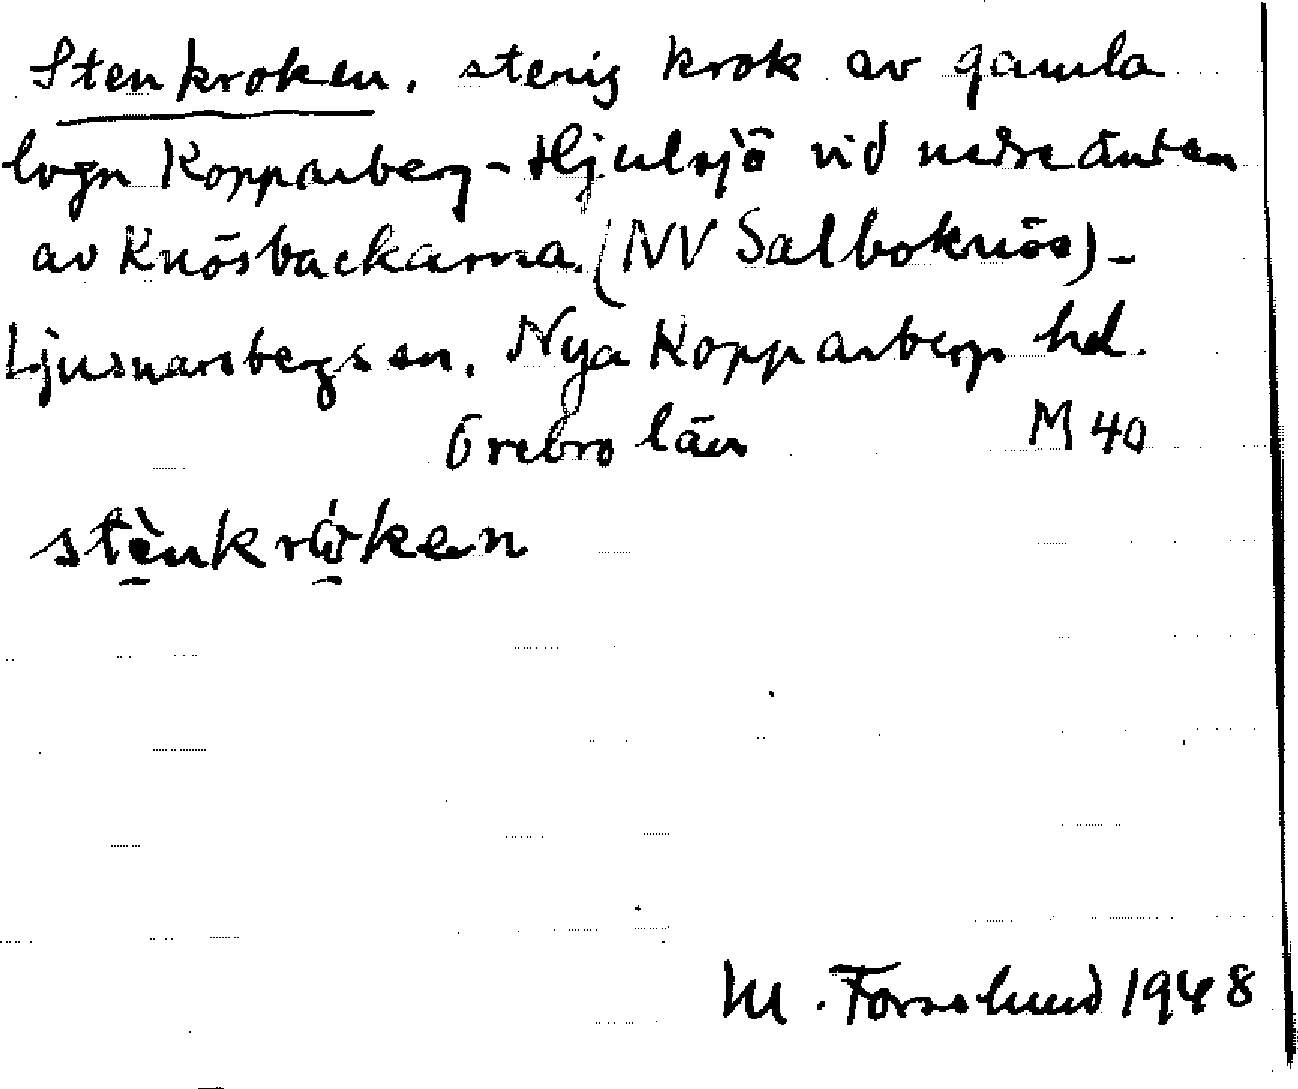 Stenkroken, stenig krok av gamla
lvgn Kopparberg - Hjulsjö vid nedre änden
av Knösbackarna. (NV Salboknös) -
Ljusnarsbergs sn, Nya Kopparbergs hd.
Örebro län M 40
stènkróken
M. Forsslund 1948